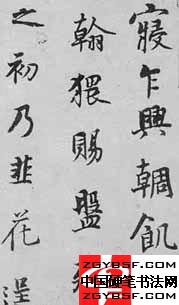 寢乍興輖飢
翰猥賜盤
之初乃韭花逞
中国硬笔书法网
ZGYBSF.COM